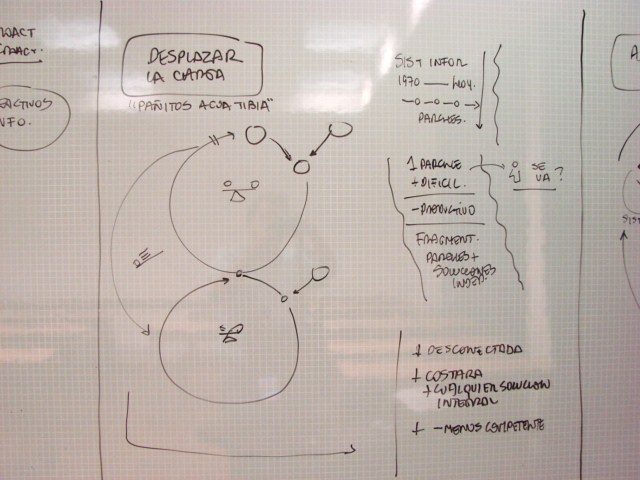 DESPLAZAR
LA CARGA
"PAÑITOS AGUA TIBIA"
SIST INFOR
1970 — HOY.
PARCHES.
1 PARCHE
+ DIFICIL.
SE
VA?
- PRODUCTIVO
FRAGMENT.
PARCHES +
SOLUCIONES
INDEP.
+ DESCONECTADA
+ COSTARA
+ CUALQUIER SOLUCION
INTEGRAL
+ - MENOS COMPETENTE
NFO.
A
SIST